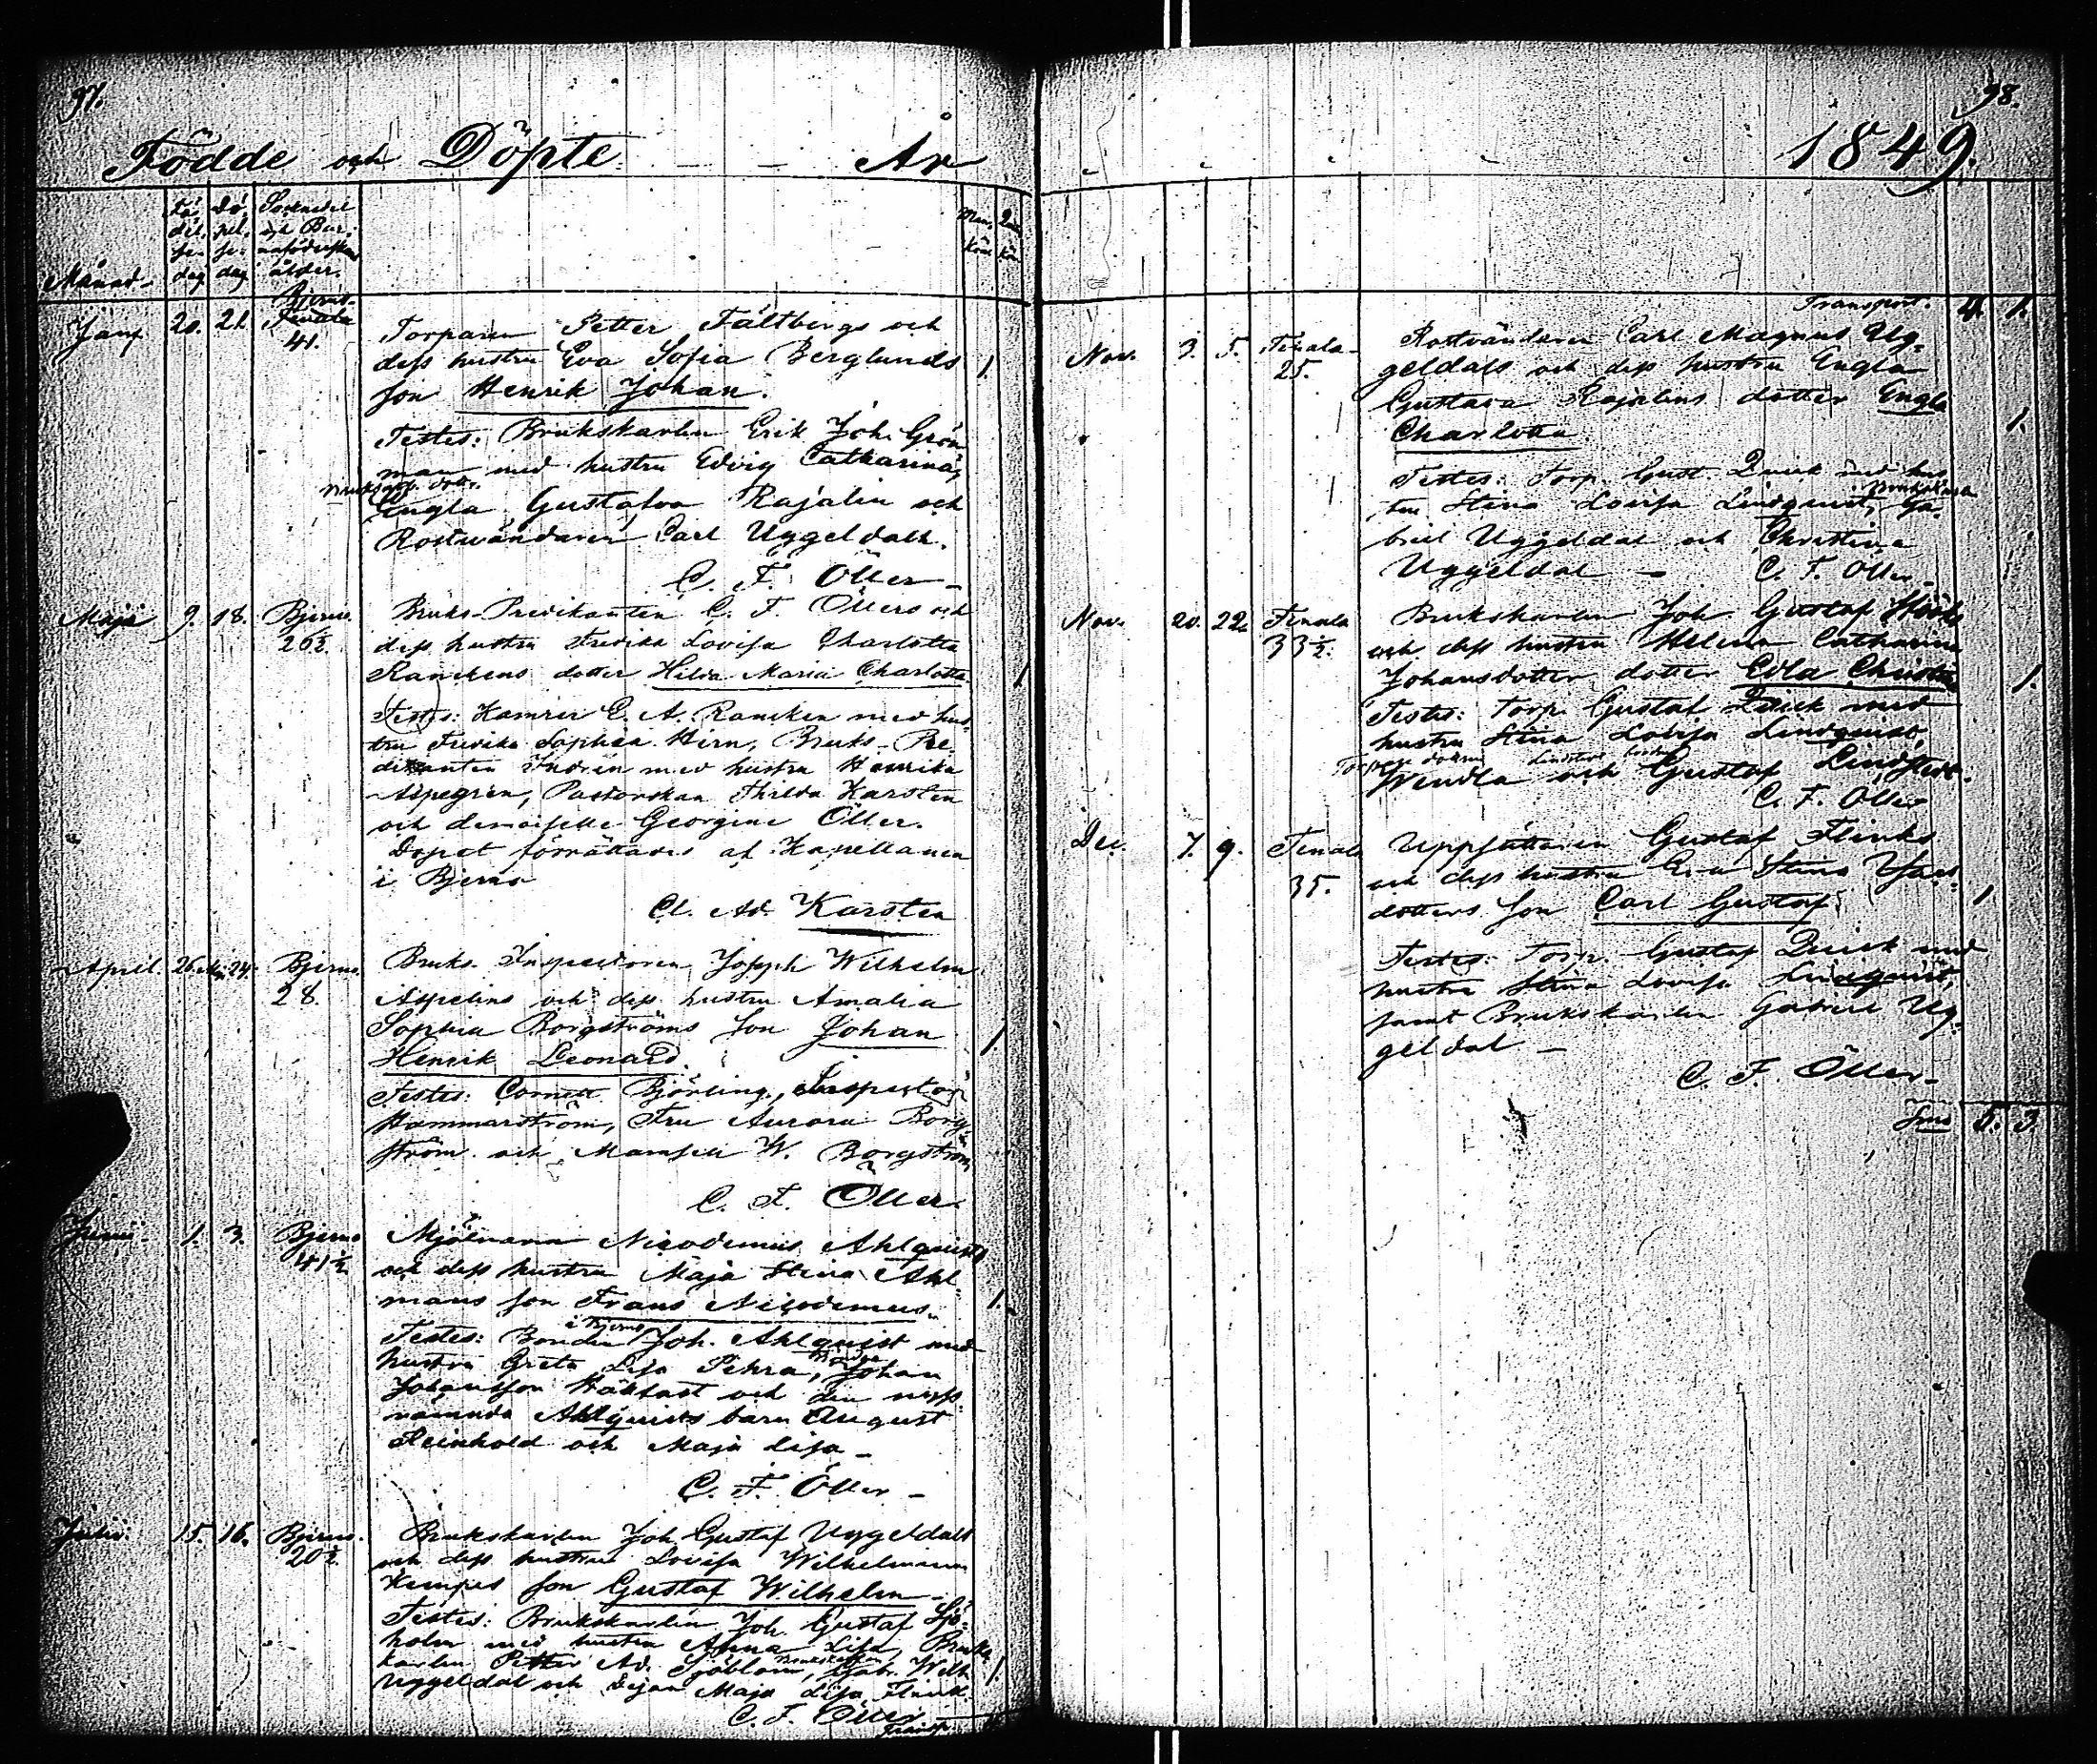 97.
Födde och Döpte År
Månad
Födel-se-dag
Döpel-se-dag
Sockendel och Barnaföderskans ålder.
Man Kön
Qvin Kön
Janr 20. 21. Bjerno 41.
Torparen Petter Fältbergs och
dess hustru Eva Sofia Berglunds
son Henrik Johan. 1.
Testes: Brukskarlen Erik Joh. Grön
man med hustru Edvig Catharina,
Engla Gustafva Rajalin och
Rostvändaren Carl Uggeldahl.
C. F. Öller
Maji 9. 18. Bjerno 26½.
Bruks-Predikanten C. F. Öllers och
dess hustru Fredrika Lovisa Charlotta
Ranckens dotter Hilda Maria Charlotta. 1
Testes: Kamrer C. A. Rancken med hus
tru Fredrika Sophia Hirn, Bruks-Pre-
dikanten Indrén med hustru Henrika
Alpegren, Pastorskan Thilda Karsten
och demoiselle Georgine Öller.
Dopet förrättades af Kapellanen
i Bjerno
Cl. Ad. Karsten
April. 26. Maj 24. Bjerno 28.
Bruks-Inspectoren Joseph Wilhelm
Aspelins och dess hustru Amalia
Sophia Borgströms son Johan
Henrik Leonard. 1.
Testes: Cornett Björling, Inspector
Hammarström, Fru Aurora Borg-
ström och Mamsell W. Borgström
C. F. Öller
Junii 1. 3. Bjerno 41½
Mjölnaren Nicodemus Ahlquists
och dess hustru Maja Stina Ahl-
mans son Frans Nicodemus. 1.
Testes: Bonden i Bjerno Joh. Ahlquist med
hustru Greta Lisa Pehrs, Johan
Johansson och den upp-
nämnda Ahlquists barn August
Reinhold och Maja Lisa
C. F. Öller
Julii 15. 16. Bjerno. 20½.
Brukskarlen Joh. Gustaf Uggeldahls
och dess hustru Lovisa Wilhelmina
Kempes son Gustaf Wilhelm
Testes: Brukskarlen Joh. Gustaf Sjö-
holm med hustru Anna Lisa, Bruks
karlen Petter Ad. Sjöblom, Brukskarlen Gabr. Wilh.
Uggeldal och Pigan Maja Lisa Flink. 1.
C. F. Öller
Transp.
98.
1849.
Transport. 4. 1.
Nov. 3. 5. Finala 25.
Rostvändaren Carl Magnus Ug-
geldals och dess hustru Engla
Gustava Rajalins dotter Engla
Charlotta 1.
Testes: Torp. Gust. Quick med hus
tru Stina Lovisa Lindquist, Brukskarlen Ga-
briel Uggeldal och Christina
Uggeldal C. F. Öller
Nov. 20. 22. Finala 33½.
Brukskarlen Joh. Gustaf Höök
och dess hustru Helena Catharina
Johansdotter dotter Edla Christina 1.
Testes: Torp. Gustaf Quick med
hustru Stina Lovisa Lindquist,
Wendla och Gustaf Lindstedt.
C. F. Öller
Dec. 7. 9. Finala 35.
Uppsättaren Gustaf Flinks
och dess hustru Eva Stina
dotters son Carl Gustaf. 1
Testes: Torp. Gustaf Quick med
hustru Stina Lovisa Lindquist,
samt Brukskarlen Gabriel Ug-
geldal
C. F. Öller
Sma 5. 3.